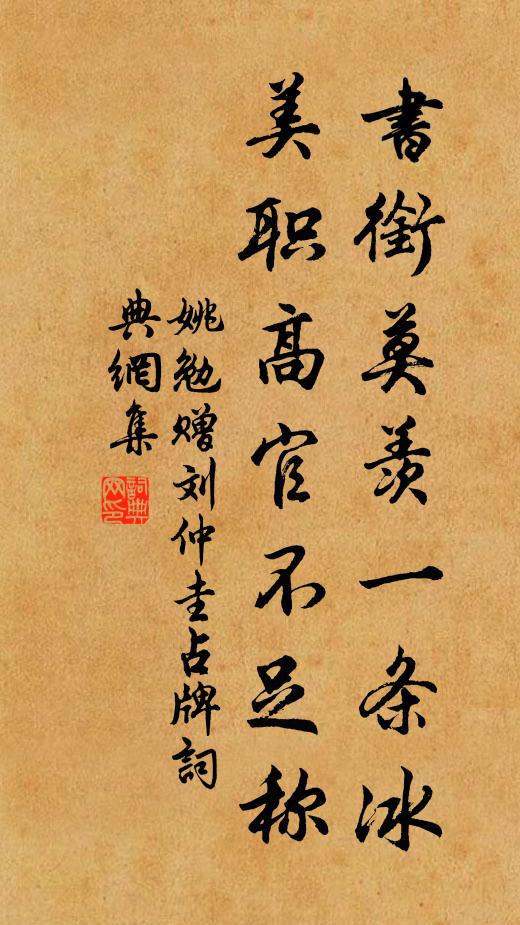 書銜莫羡一条冰
美职高官不足称
姚勉赠刘仲圭占牌詞
典網集
詞典
网印